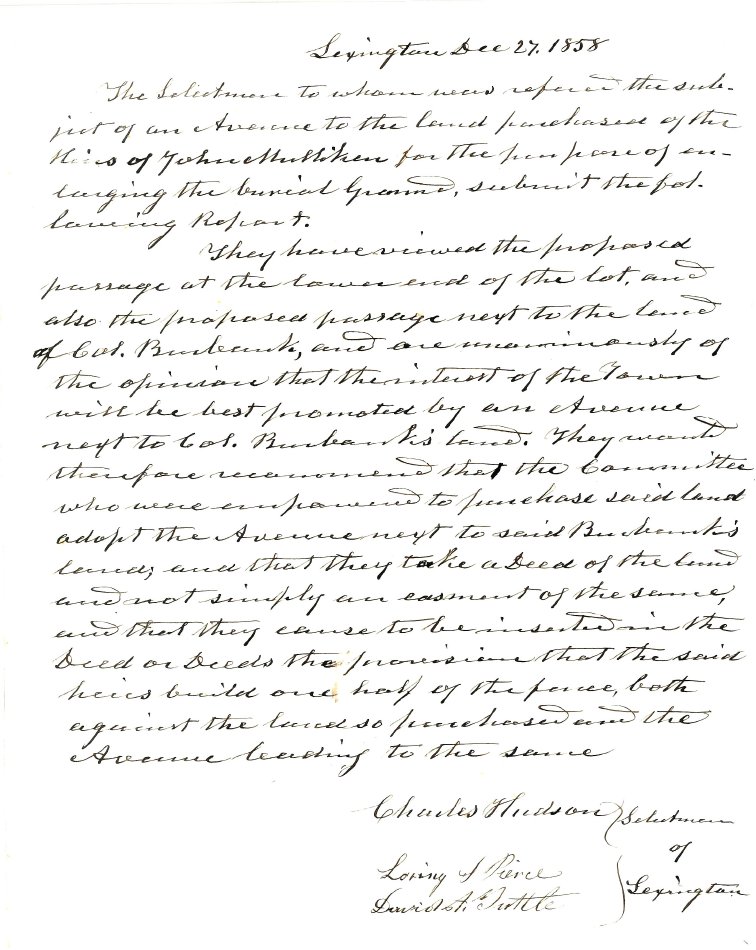 Lexington Dec 27. 1858
The Selectmen to whom was refered the sub-
ject of an Avenue to the land purchased of the
Heirs of John Mulliken for the purpose of en-
larging the burial Ground, submit the fol-
lowing Report.
They have viewed the proposed
passage at the lower end of the lot, and
also the proposed passage next to the land
of Col. Burbank, and are unanimously of
the opinion that the interest of the Town
will be best promoted by an Avenue
next to Col. Burbank's land. They would
therefore recommend that the Committee
who were empowered to purchase said land
adopt the Avenue next to said Burbank's
land; and that they take a Deed of the land
and not simply an easment of the same,
and that they cause to be inserted in the
Deed or Deeds the provision that the said
heirs build one half of the fence, both
against the land so purchased and the
Avenue leading to the same
Charles Hudson } Selectmen
of
Loring S Pierce
David A. Tuttle } Lexington